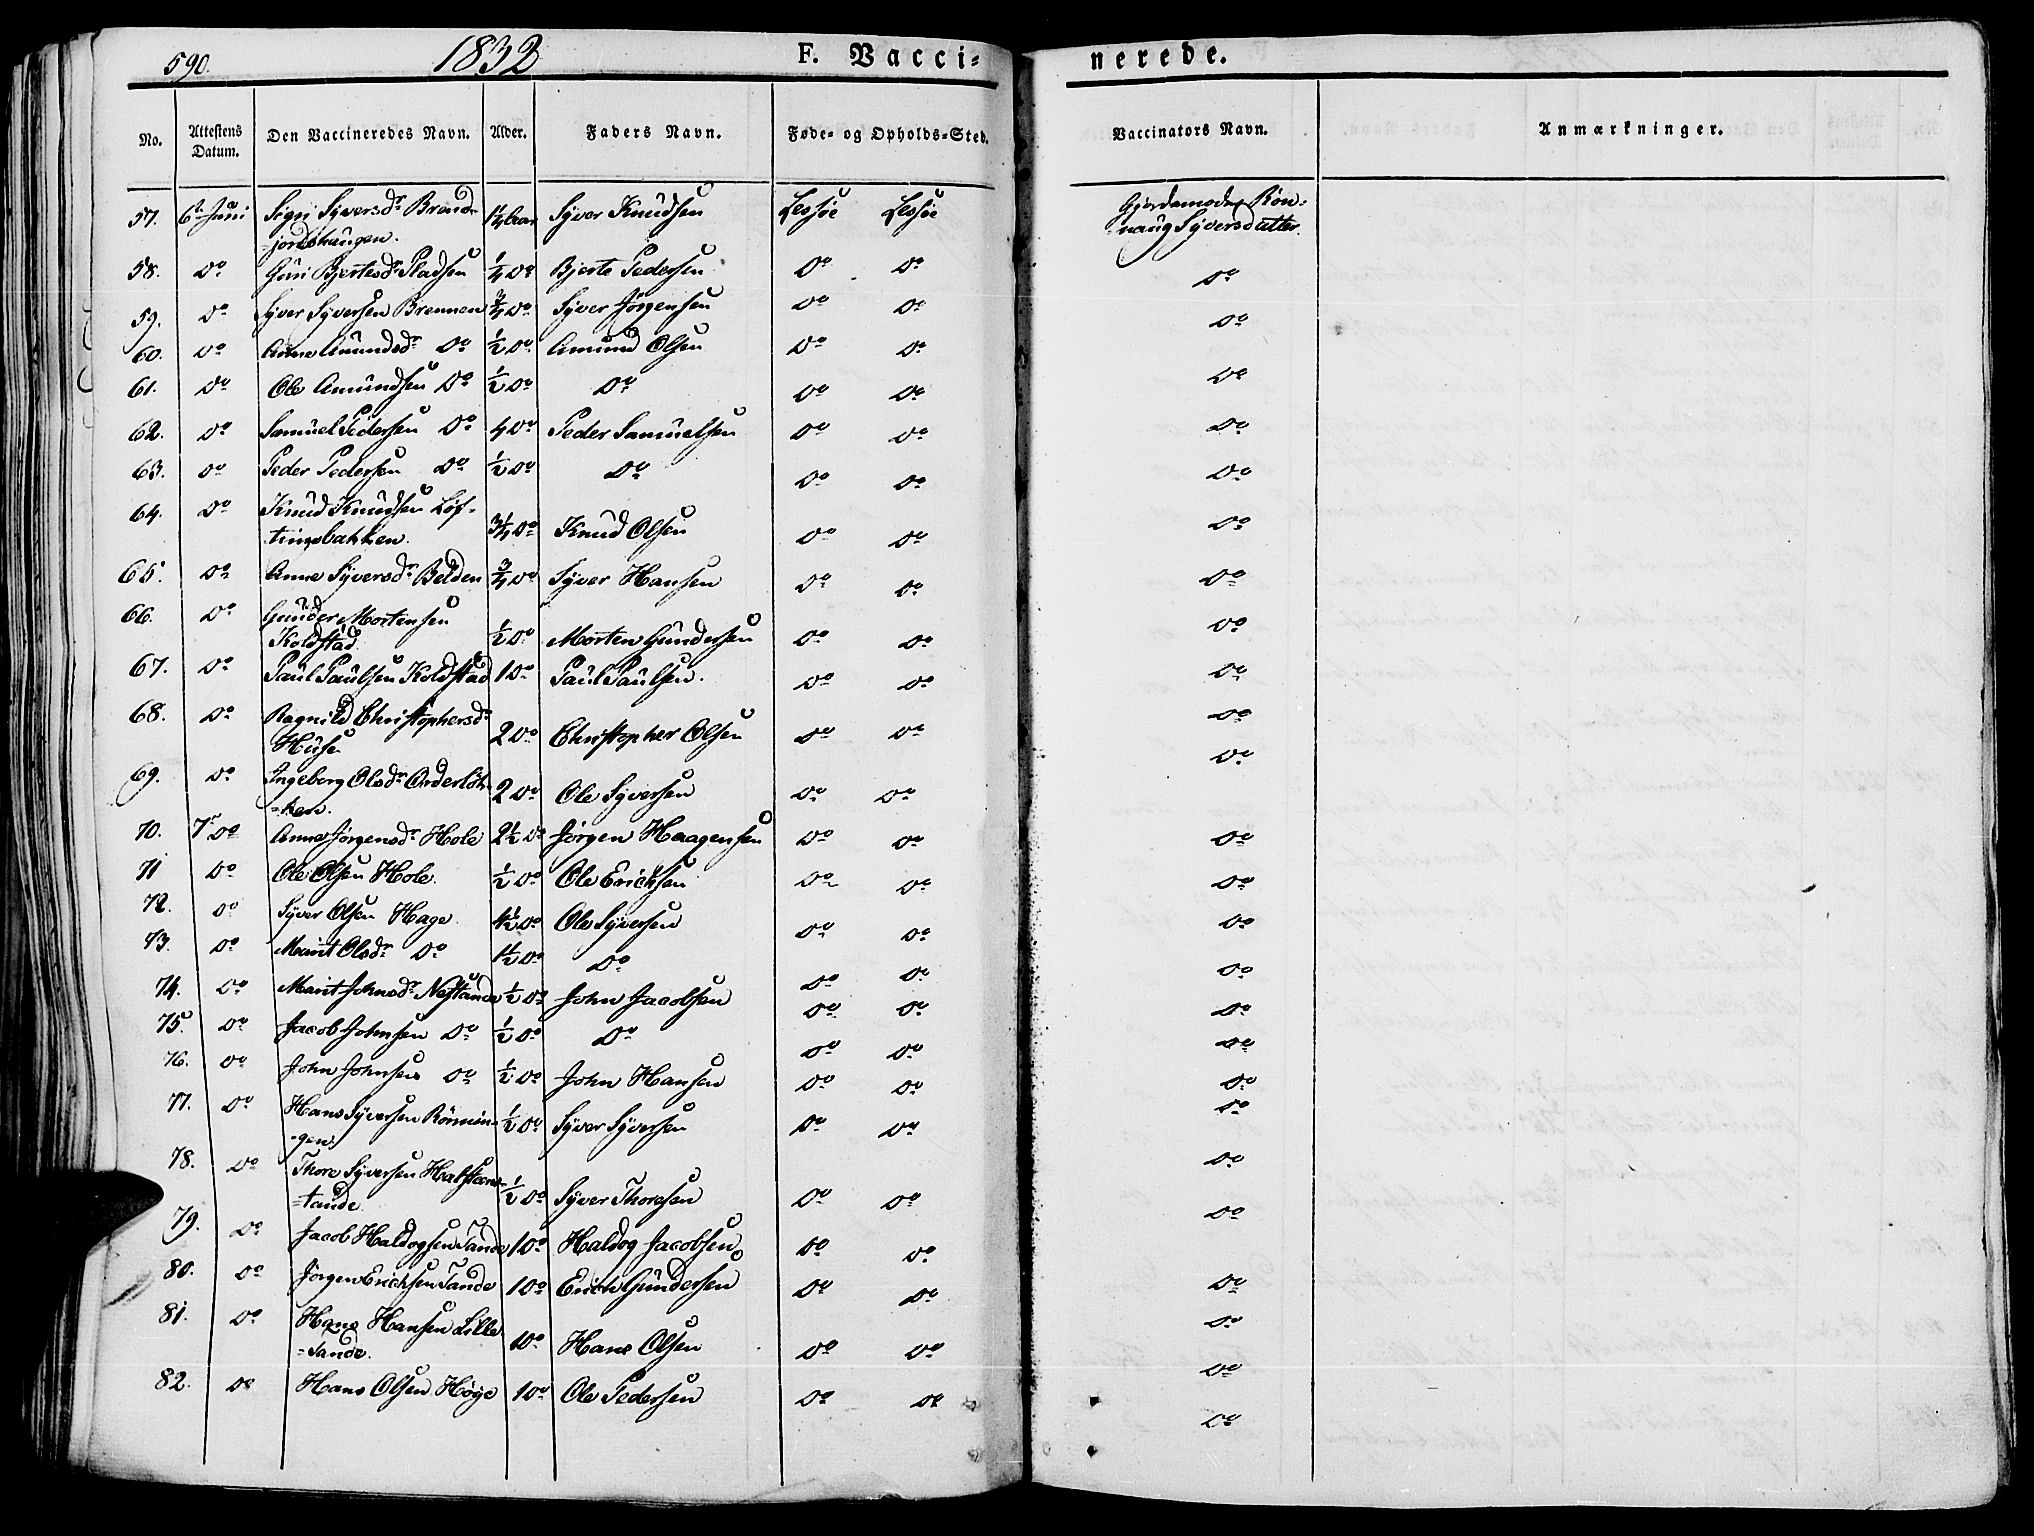 590. 1832 F. Vacci=nerede.
No. Attestens Datum. Den Vaccineredes Navn. Alder. Faders Navn. Føde= og Opholds=Sted. Vaccinators Navn. Anmærkninger.
57. 6te Juni Sigri Syversdr Brend= 1/4 Aar Syver Knudsen Lessøe Lessøe Gjordemoder Røn=
=jordshaugen. naug Syversdatter.
58. Do Guri Bjertesdr Pladsen 1/4 Do Bjerte Pedersen Do Do Do
59. Do Syver Syversen Brennen 3/4 Do Syver Jørgensen Do Do Do
60. Do Anne Amundsdr Do 1/2 Do Amund Olsen Do Do Do
61. Do Ole Amundsen Do 1/2 Do Do Do Do Do
62. Do Samuel Pedersen Do 4 Do Peder Samuelsen Do Do Do
63. Do Peder Pedersen Do 1/2 Do Do Do Do Do
64. Do Knud Knudsen Løf=
tingsbakken. 3/4 Do Knud Olsen Do Do Do
65. Do Anne Syversdr Belden 3/4 Do Syver Hansen Do Do Do
66. Do Gunder Mortensen
Koldstad 1/2 Do Morten Gundersen Do Do Do
67. Do Paul Paulsen Koldstad 1 Do Paul Paulsen. Do Do Do
68. Do Ragnild Christophersdr
Huse 2 Do Christopher Olsen Do Do Do
69. Do Ingeborg Olsdr Anderløk=
=ken. 2 Do Ole Syversen Do Do Do
70. 7de Do Anne Jørgensdr Hole 2 1/2 Do Jørgen Haagensen Do Do Do
71 Do Ole Olsen Hole. 1/2 Do Ole Ericksen Do Do Do
72. Do Syver Olsen Hage 4 1/2 Do Ole Syversen Do Do Do
73. Do Marit Olsdr Do 1 1/2 Do Do Do Do Do
74. Do Marit Johnsdr Nystande 1/2 Do John Jacobsen Do Do Do
75. Do Jacob Johnsen Do 1/2 Do Do Do Do Do
76. Do John Johnsen Do 1/2 Do John Hansen Do Do Do
77. Do Hans Syversen Rønnin=
=gen. 1/2 Do Syver Syversen Do Do Do
78. Do Thore Syversen Halsteens=
=tande 1/2 Do Syver Thoresen Do Do Do
79. Do Jacob Haldogsen Tande 1 Do Haldog Jacobsen Do Do Do
80. Do Jørgen Ericksen Tande 1 Do Erich Gundersen Do Do Do
81. Do Hans Hansen Lille
=Tande. 1 Do Hans Olsen Do Do Do
82. Do Hans Olsen Høye 1 Do Ole Pedersen Do Do Do
Do